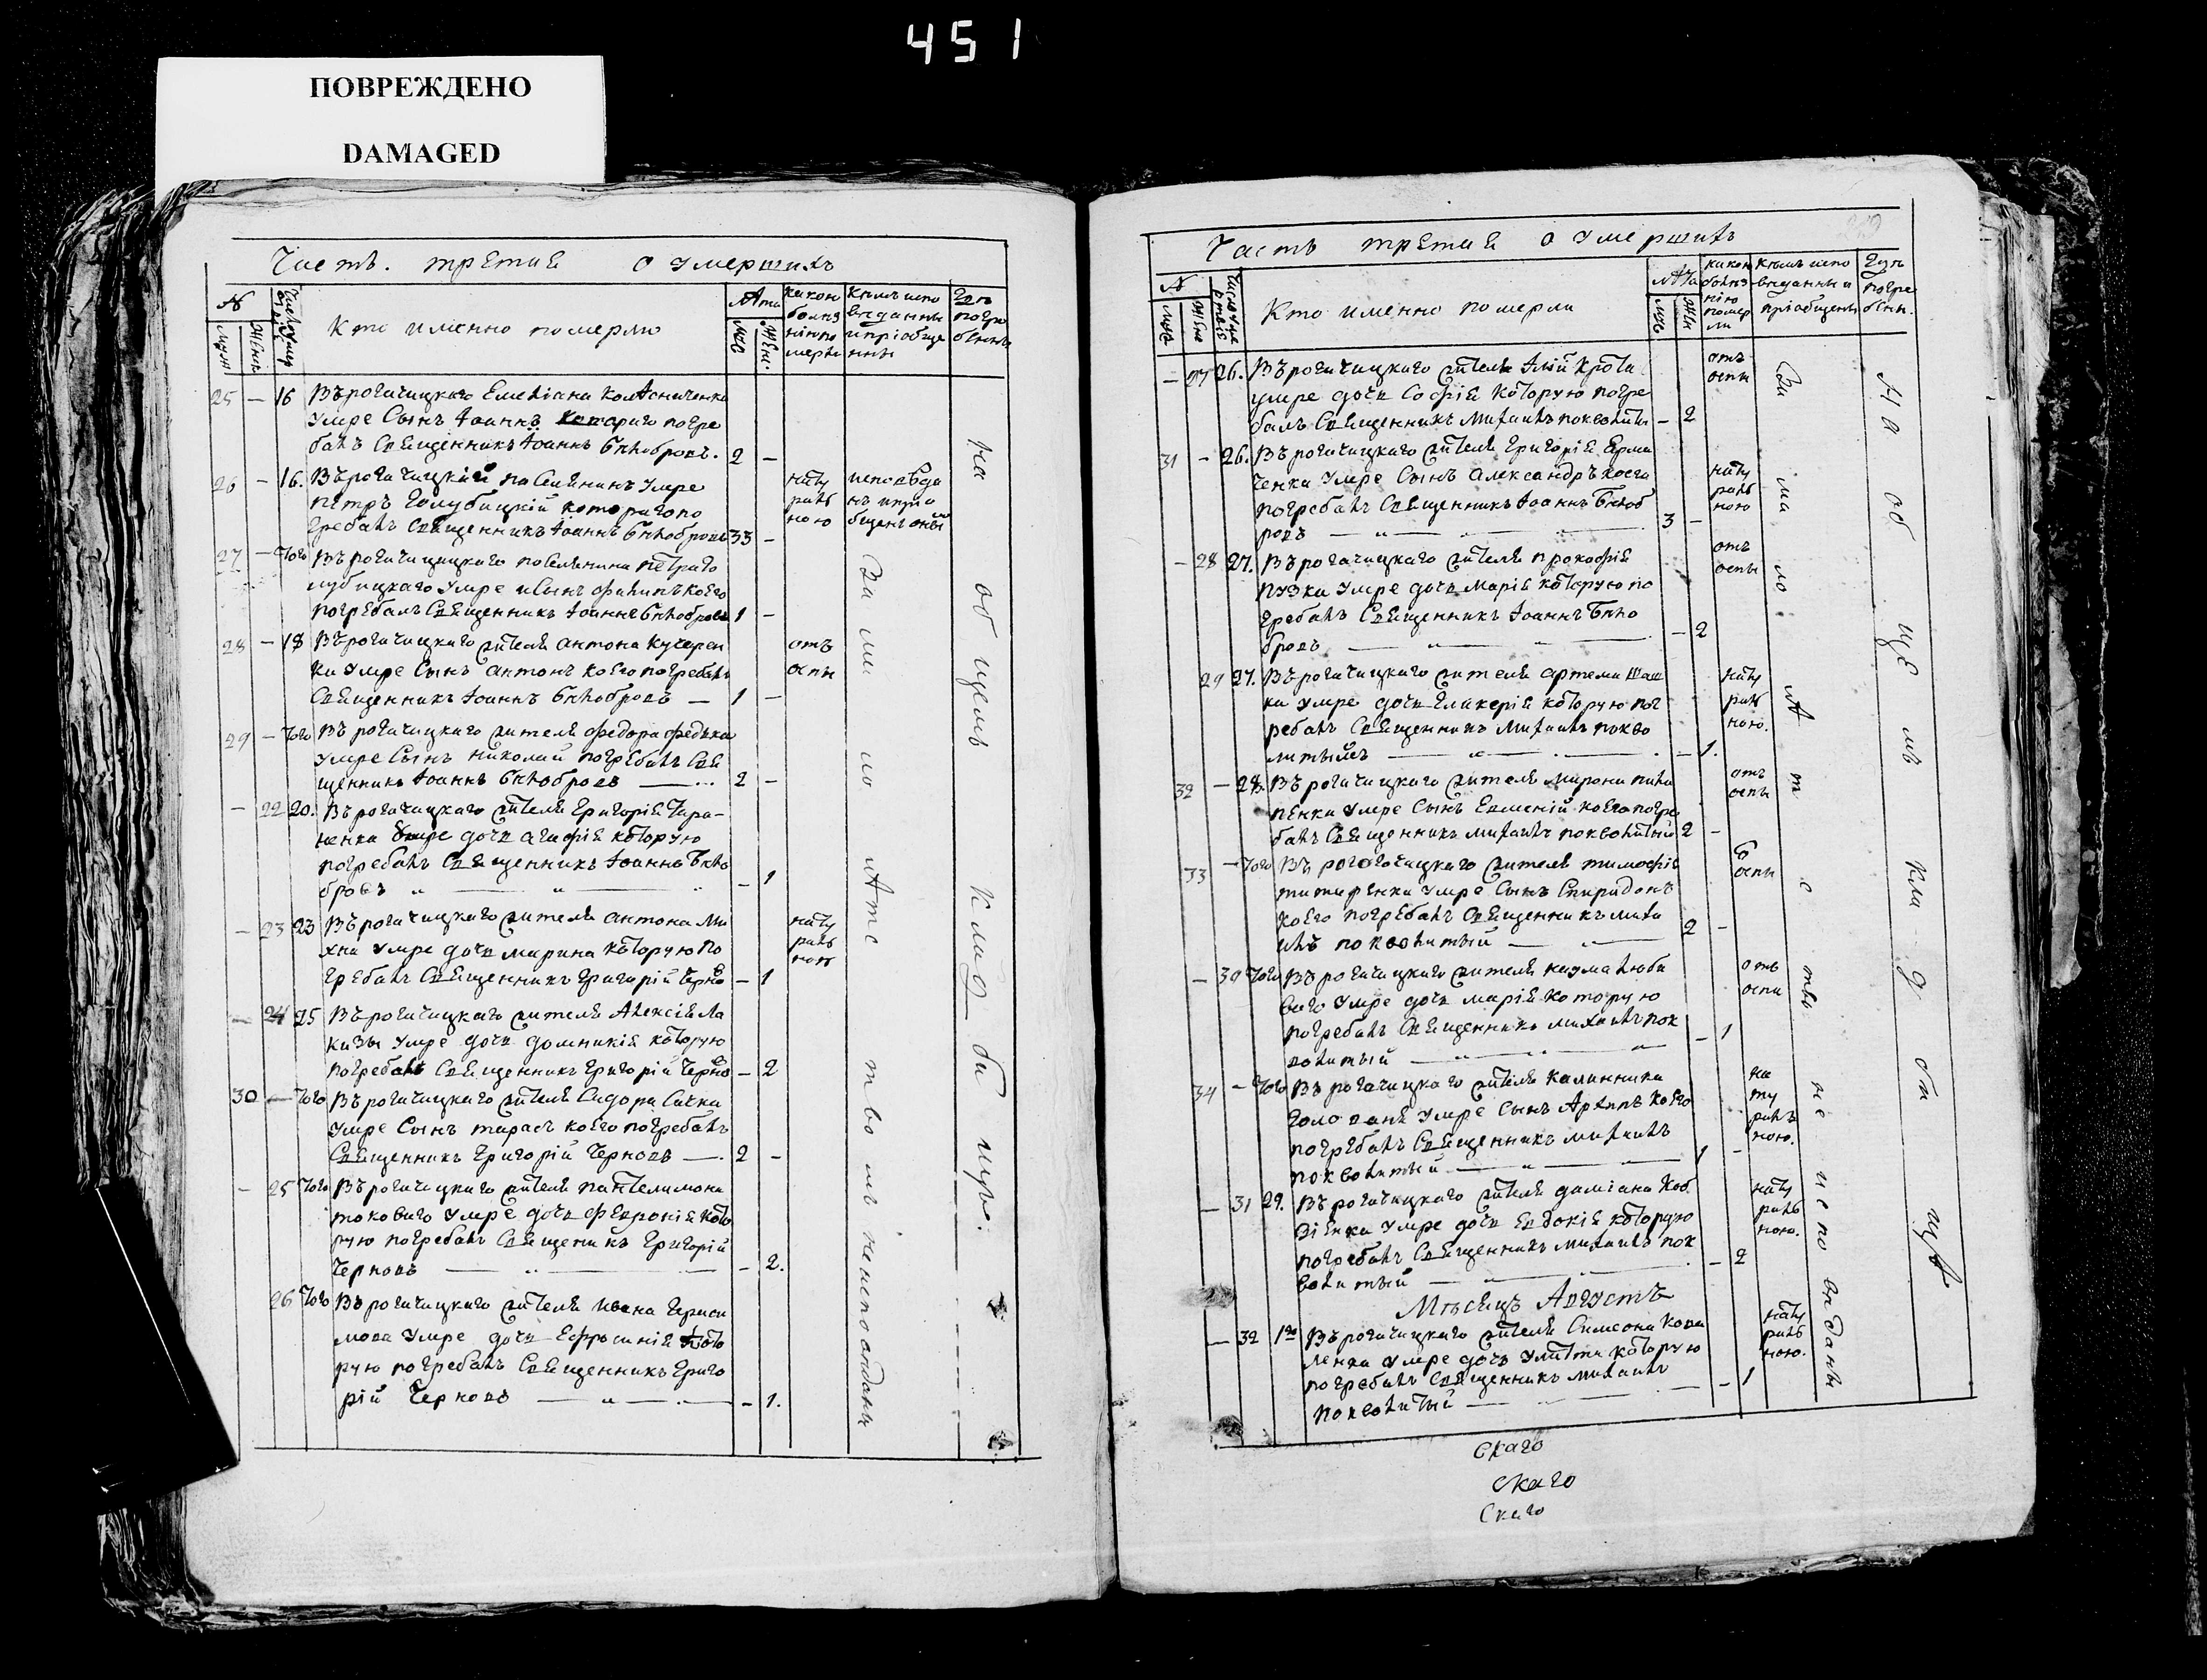 451
ПОВРЕЖДЕНО
DAMAGED
Часть. третия о умершихъ
№
муж
жен.
Число умер
Кто именно померли
лѣта
муж
жен.
какою
болѣз
нію по
мерли
кѣмъ испо
вѣданны
и пріобще
нны
гдѣ
погре
бенны
25 — 16 Въ рогачицкаго Емеліана
умре сынъ Іоаннъ котораго погре
балъ священникъ Іоаннъ Бѣлобровъ. 2 —
26 — 16. Въ рогачицкій поселянинъ умре
Петръ Голубицкій котораго по
гребалъ священникъ Іоаннъ Бѣлобровъ 33 —
нату
раль
ною
исповѣда
нъ и прио
бщенъ оный
27 — того Въ рогачицкаго поселянина Петра Го
лубицкаго умре и сынъ Филипъ коего
погребалъ священникъ Іоаннъ Бѣлобровъ 1 —
28 — 18 Въ рогачицкаго жителя Антона Кучерен
ка умре сынъ Антонъ коего погребалъ
священникъ Іоаннъ Бѣлобровъ — 1 —
отъ
оспы
29 — того Въ рогачицкаго жителя Федора Федька
умре сынъ Николай погребалъ свя
щенникъ Іоаннъ Бѣлобровъ — 2 —
— 22 20. Въ рогачицкаго жителя Григорія Тара-
ненка умре дочь Агафія которую
погребалъ священникъ Іоаннъ Бѣло
бровъ — 1
— 23 23 Въ рогачицкаго жителя Антона Ми
хна умре дочь Марина которую по
гребалъ священникъ Григорій Черновъ — 1
нату
раль
ною
— 24 25 Въ рогачицкаго жителя Алексія Ла
кизы умре дочь Домникія которую
погребалъ священникъ Григорій Черновъ — 2
30 — того Въ рогачицкаго жителя Сидора Сачка
умре сынъ Тарасъ коего погребалъ
священникъ Григорій Черновъ — 2 —
— 25 того Въ рогачицкаго жителя Пантелимона
Токоваго умре дочь Февронія кото
рую погребалъ священикъ Григорій
Черновъ — 2.
26 того Въ рогачицкаго жителя Ивана Гераси
мова умре дочь Ефросинія кото
рую погребалъ священникъ Григо
рій Черновъ — 1.
За мало лѣтствомъ не исповѣданы
На общемъ кладбищѣ.
Часть третия о умершихъ
№
муж
жен
Кто именно померли
лѣта
муж
жен
какою
болѣз
нію
помер
ли
Кѣмъ испо
вѣданны и
пріобщены
Гдѣ
погре
бенн.
— 27 26. Въ рогачицкаго жителя Илiи Крота
умре дочь Софія которую погре
балъ священникъ Михаилъ Поквалиты — 2
отъ
оспы
31 — 26. Въ рогачицкаго жителя Григорія Ерма
ченка умре сынъ Александръ коего
погребалъ священникъ Іоаннъ Бѣлоб
ровъ — 3 —
нату
раль
ною
— 28 27. Въ рогачицкаго жителя Прокофія
Пузка умре дочь Марія которую по
гребалъ священникъ Іоаннъ Бѣло
бровъ — 2
отъ
оспы
29 27. Въ рогачицкаго жителя Артема Шаш
ка умре дочь Гликерія которую пог
ребалъ священникъ Михаилъ Поква
литый — 1.
нату
раль
ною.
32 — 28. Въ рогачицкаго жителя Мирона Пили
пенка умре сынъ Евменій коего погре
балъ священникъ Михаилъ Поквалитый 2 —
отъ
оспы
33 — того Въ рогогачицкаго жителя Тимофія
Титаренка умре сынъ Спиридонъ
коего погребалъ священникъ Миха
илъ Поквалитый — 2 —
оспы
— 30 того Въ рогачицкаго жителя Казма Люби
ваго умре дочь Марія которую
погребалъ священникъ Михаилъ Пок
валитый — 1
отъ
оспы
34 — того Въ рогачицкаго жителя Калинника
Голованя умре сынъ Архипъ коего
погребалъ священникъ Михаилъ
Поквалитый — 1 —
на
ту
раль
ною.
— 31 29. Въ рогачицкаго жителя Даміана Коб
зіенка умре дочь Евдокія которую
погребалъ священникъ Михаилъ Пок
валитый — 2
нату
раль
ною.
Мѣсяцъ Августъ
— 32 1го Въ рогачицкаго жителя Симеона Кова
ленка умре дочь Улита которую
погребалъ священникъ Михаилъ
Поквалитый — 1
нату
раль
ною.
За мало лѣтствы не исповѣданы
На общемъ кладбищѣ
скаго
скаго
скаго